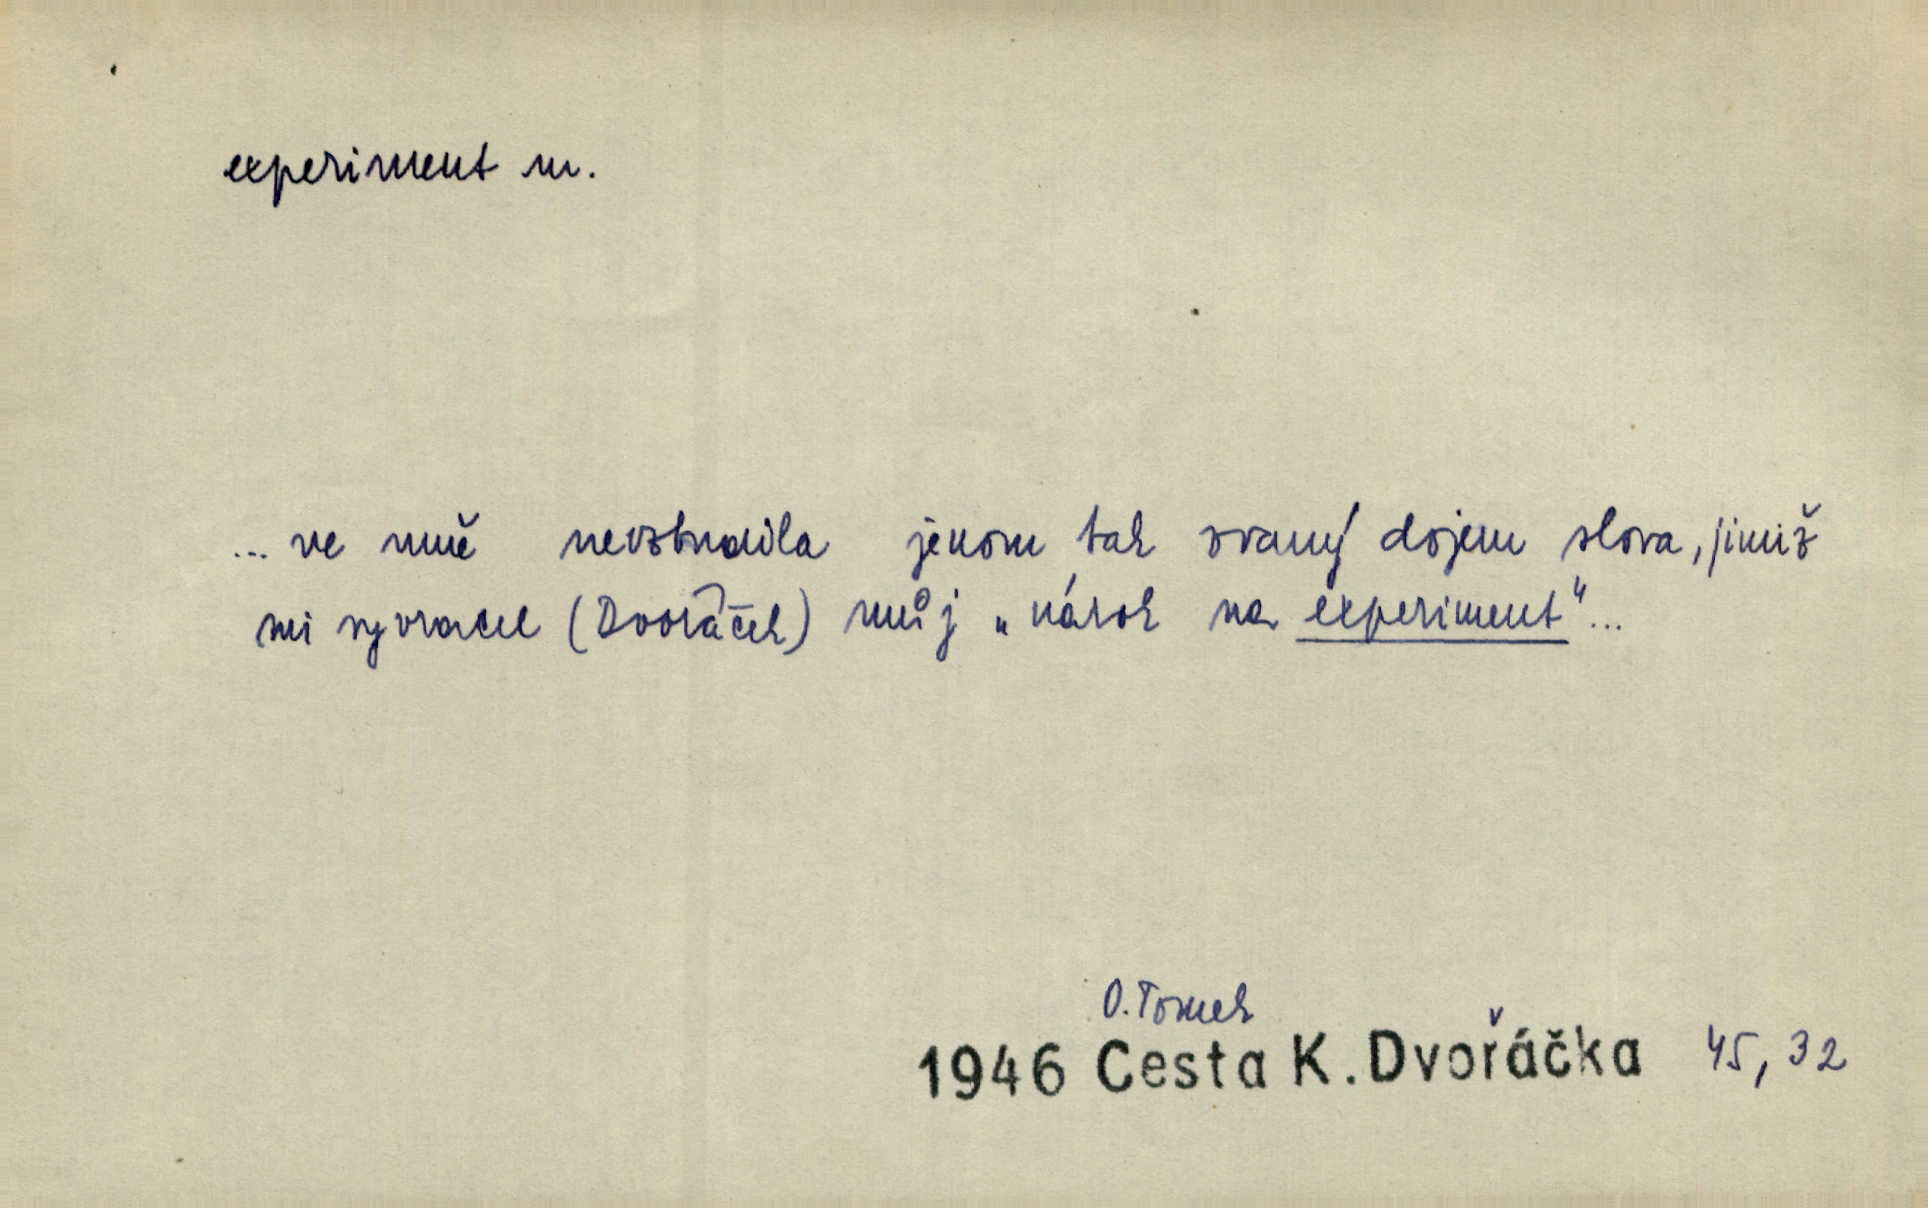 experiment m.
... ve mně nevzbudila jenom tak zvaný dojem slova, jimiž
mi vyvracel (Dvořáček) můj „nárok na experiment“...
O. Tomek
1946 Cesta K. Dvořáčka 45, 32